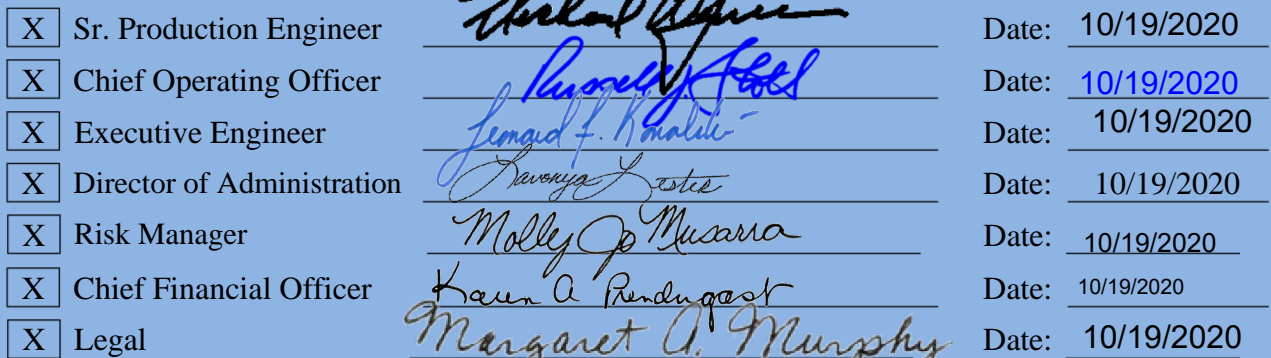 X Sr. Production Engineer Date: 10/19/2020
X Chief Operating Officer Russell J. Stoll Date: 10/19/2020
X Executive Engineer Leonard F. Kowalski Date: 10/19/2020
X Director of Administration Lavonya Lester Date: 10/19/2020
X Risk Manager Molly Jo Musarra Date: 10/19/2020
X Chief Financial Officer Karen A Prendergast Date: 10/19/2020
X Legal Margaret A. Murphy Date: 10/19/2020